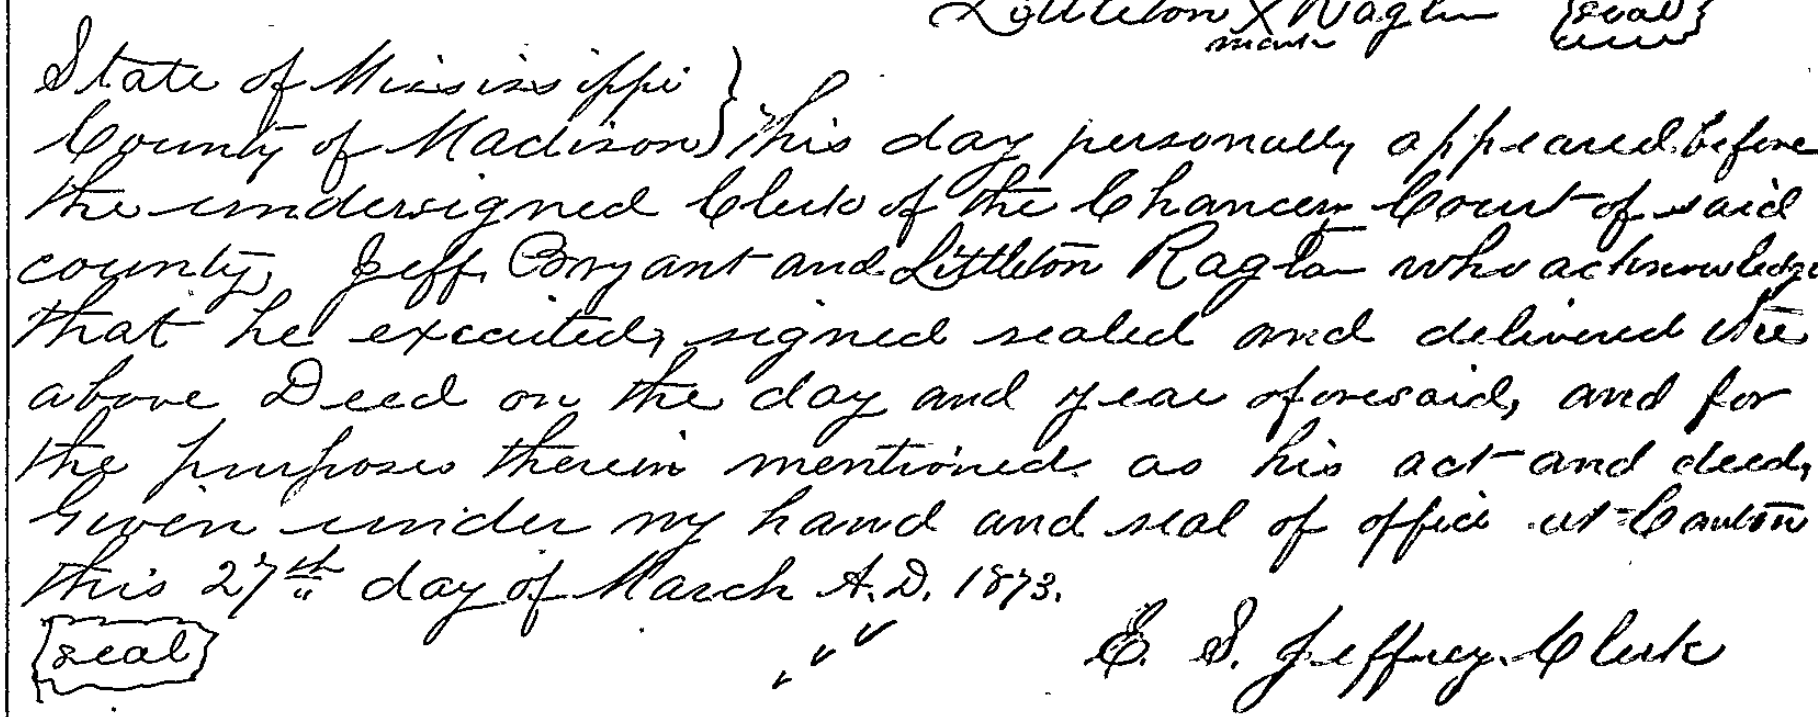 Littleton X Raglin {seal}
mark
State of Mississippi }
County of Madison } This day personally appeared before
the undersigned Clerk of the Chancery Court of said
county, Jeff. Bryant and Littleton Raglan who acknowledge
that he executed, signed sealed and delivered the
above Deed on the day and year aforesaid, and for
the purposes therein mentioned as his act and deed,
Given under my hand and seal of office at Canton
this 27th day of March A.D. 1873.
{seal} E. S. Jeffrey. Clerk